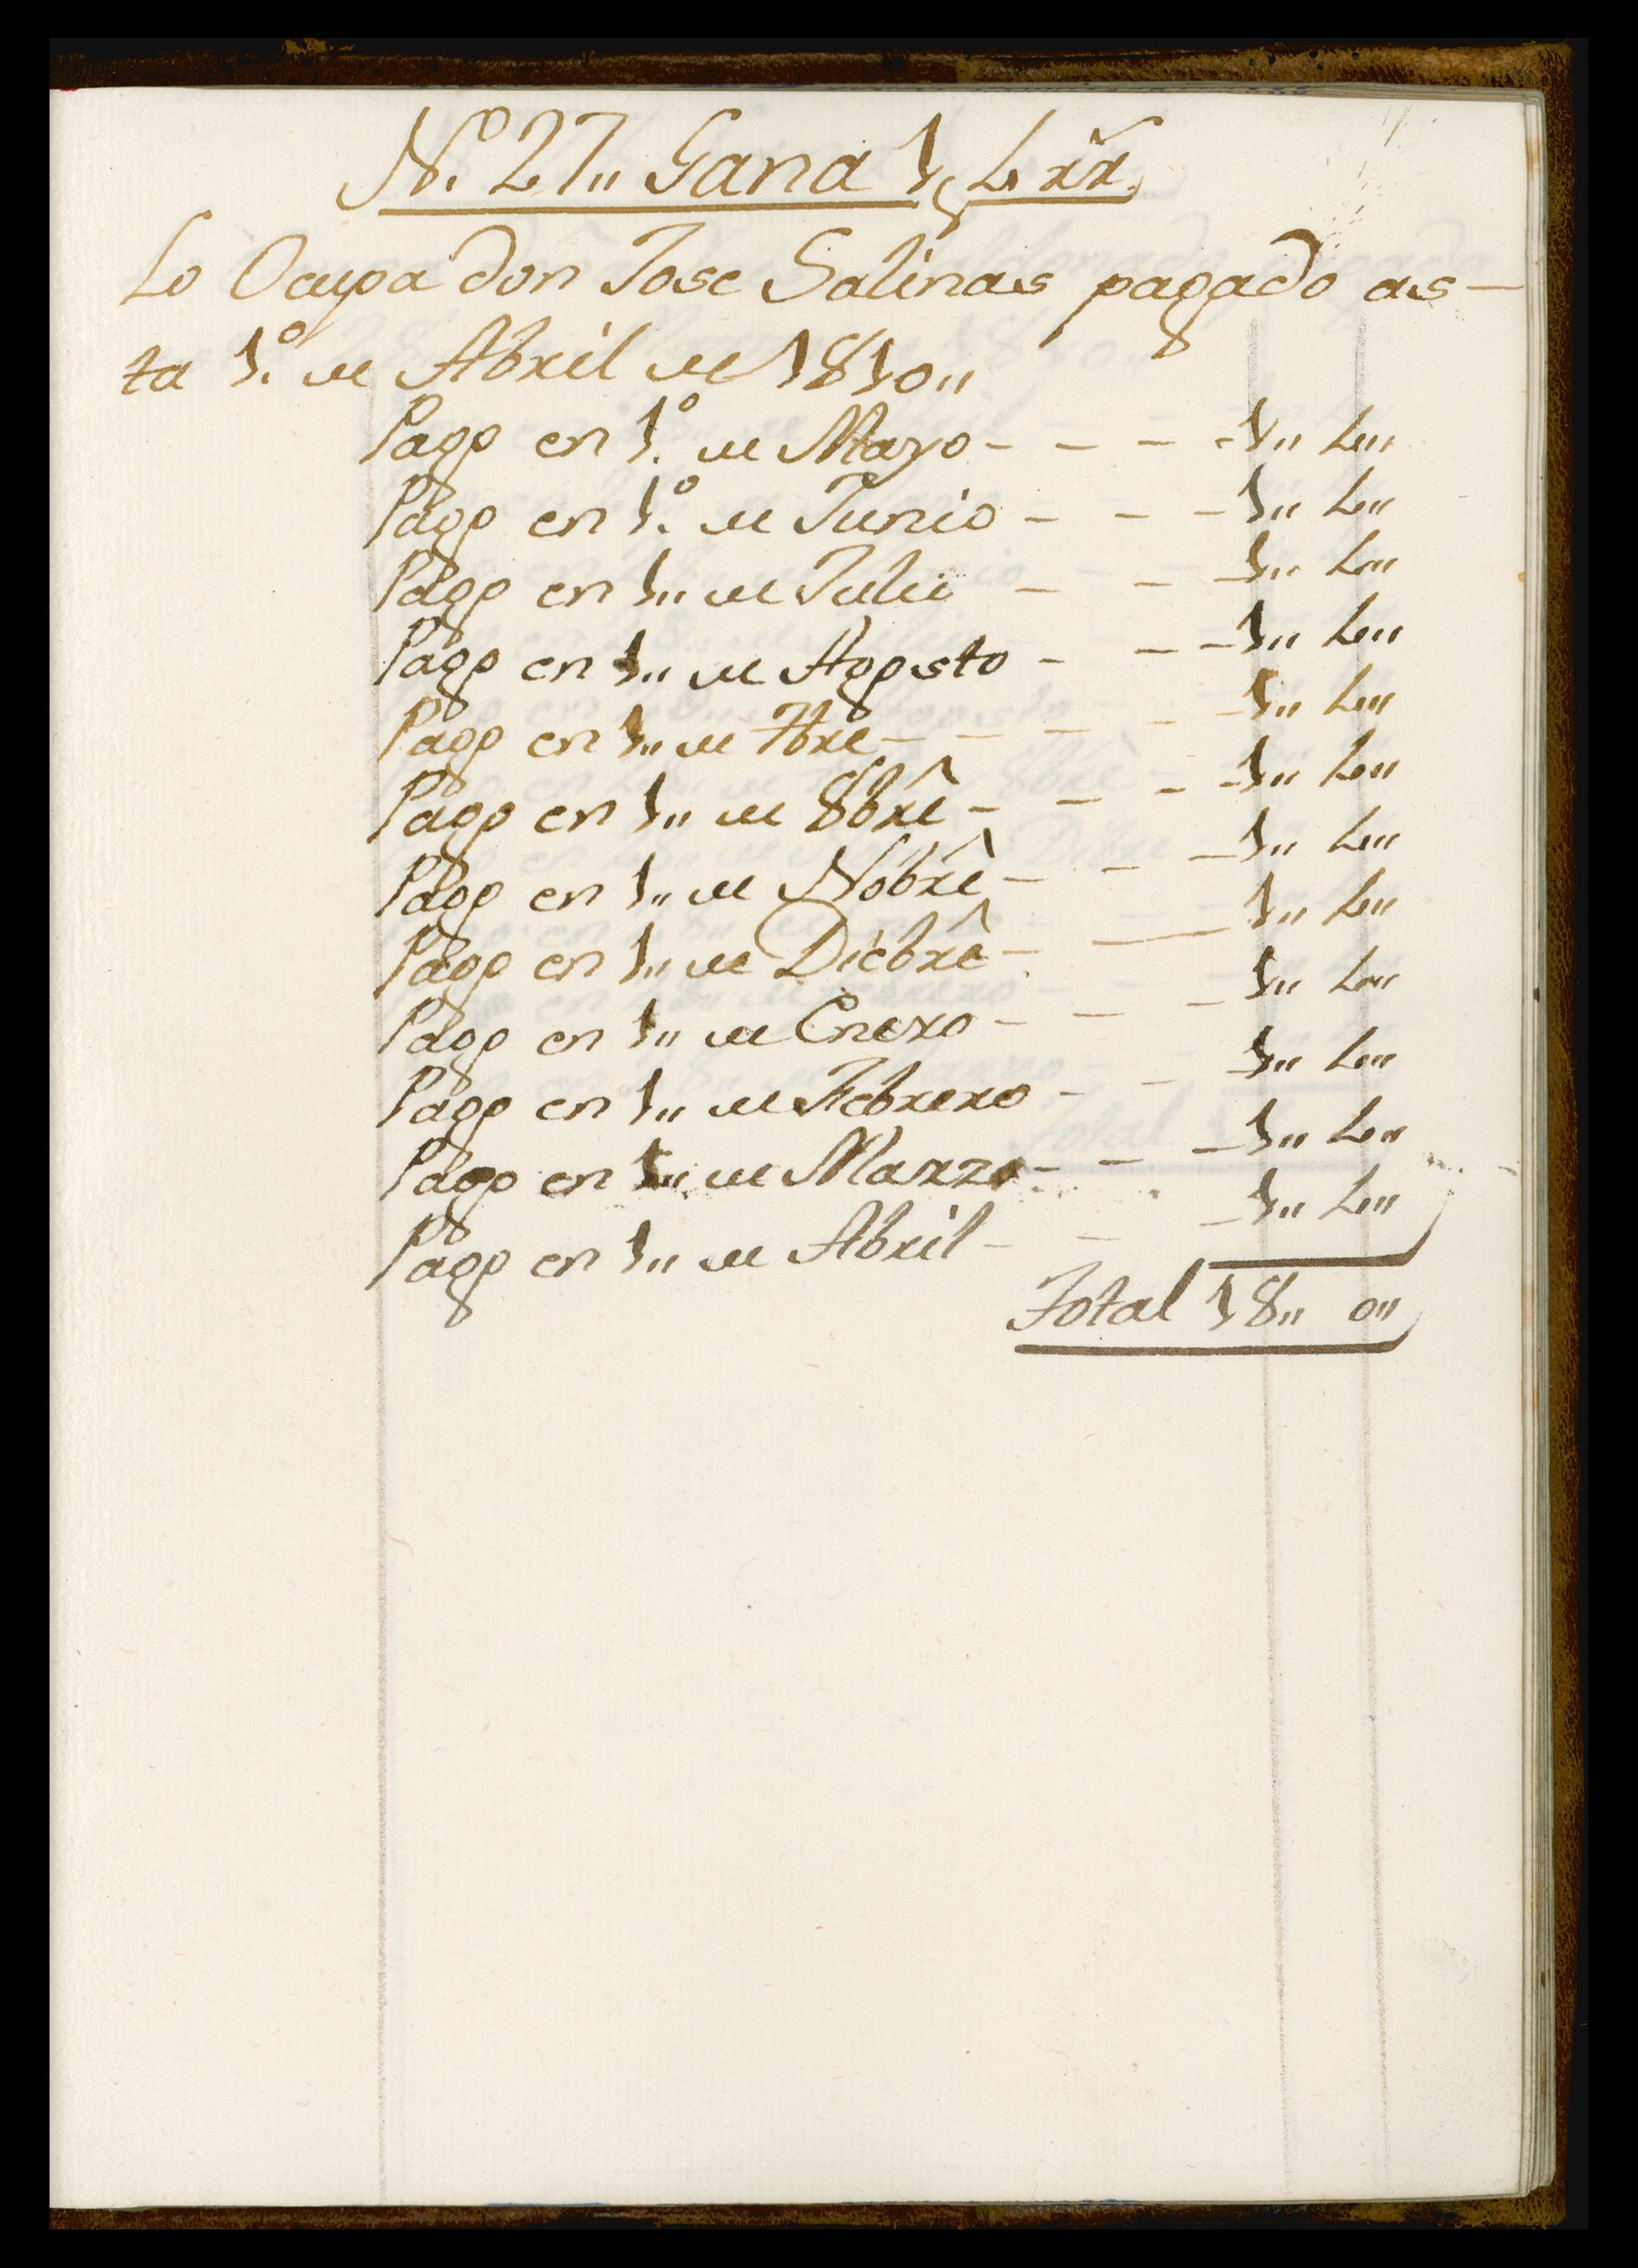 N.º 27,, Gana 1,, 4 rr.
Lo Ocupa don Jose Salinas pagado as-
ta 1.º de Abril de 1810,,
Pago en 1.º de Mayo - - - - 1,, 4,,
Pago en 1.º de Junio - - - 1,, 4,,
Pago en 1,, de Julio - - - 1,, 4,,
Pago en 1,, de Agosto - - - 1,, 4,,
Pago en 1,, de 7bre - - - - - 1,, 4,,
Pago en 1,, de 8bre - - - - 1,, 4,,
Pago en 1,, de Nobre - - - 1,, 4,,
Pago en 1,, de Dicbre - - 1,, 4,,
Pago en 1,, de Enero - - - 1,, 4,,
Pago en 1,, de Febrero - - - 1,, 4,,
Pago en 1,, de Marzo - - - 1,, 4,,
Pago en 1,, de Abril - - - 1,, 4,,
Total 18,, 0,,